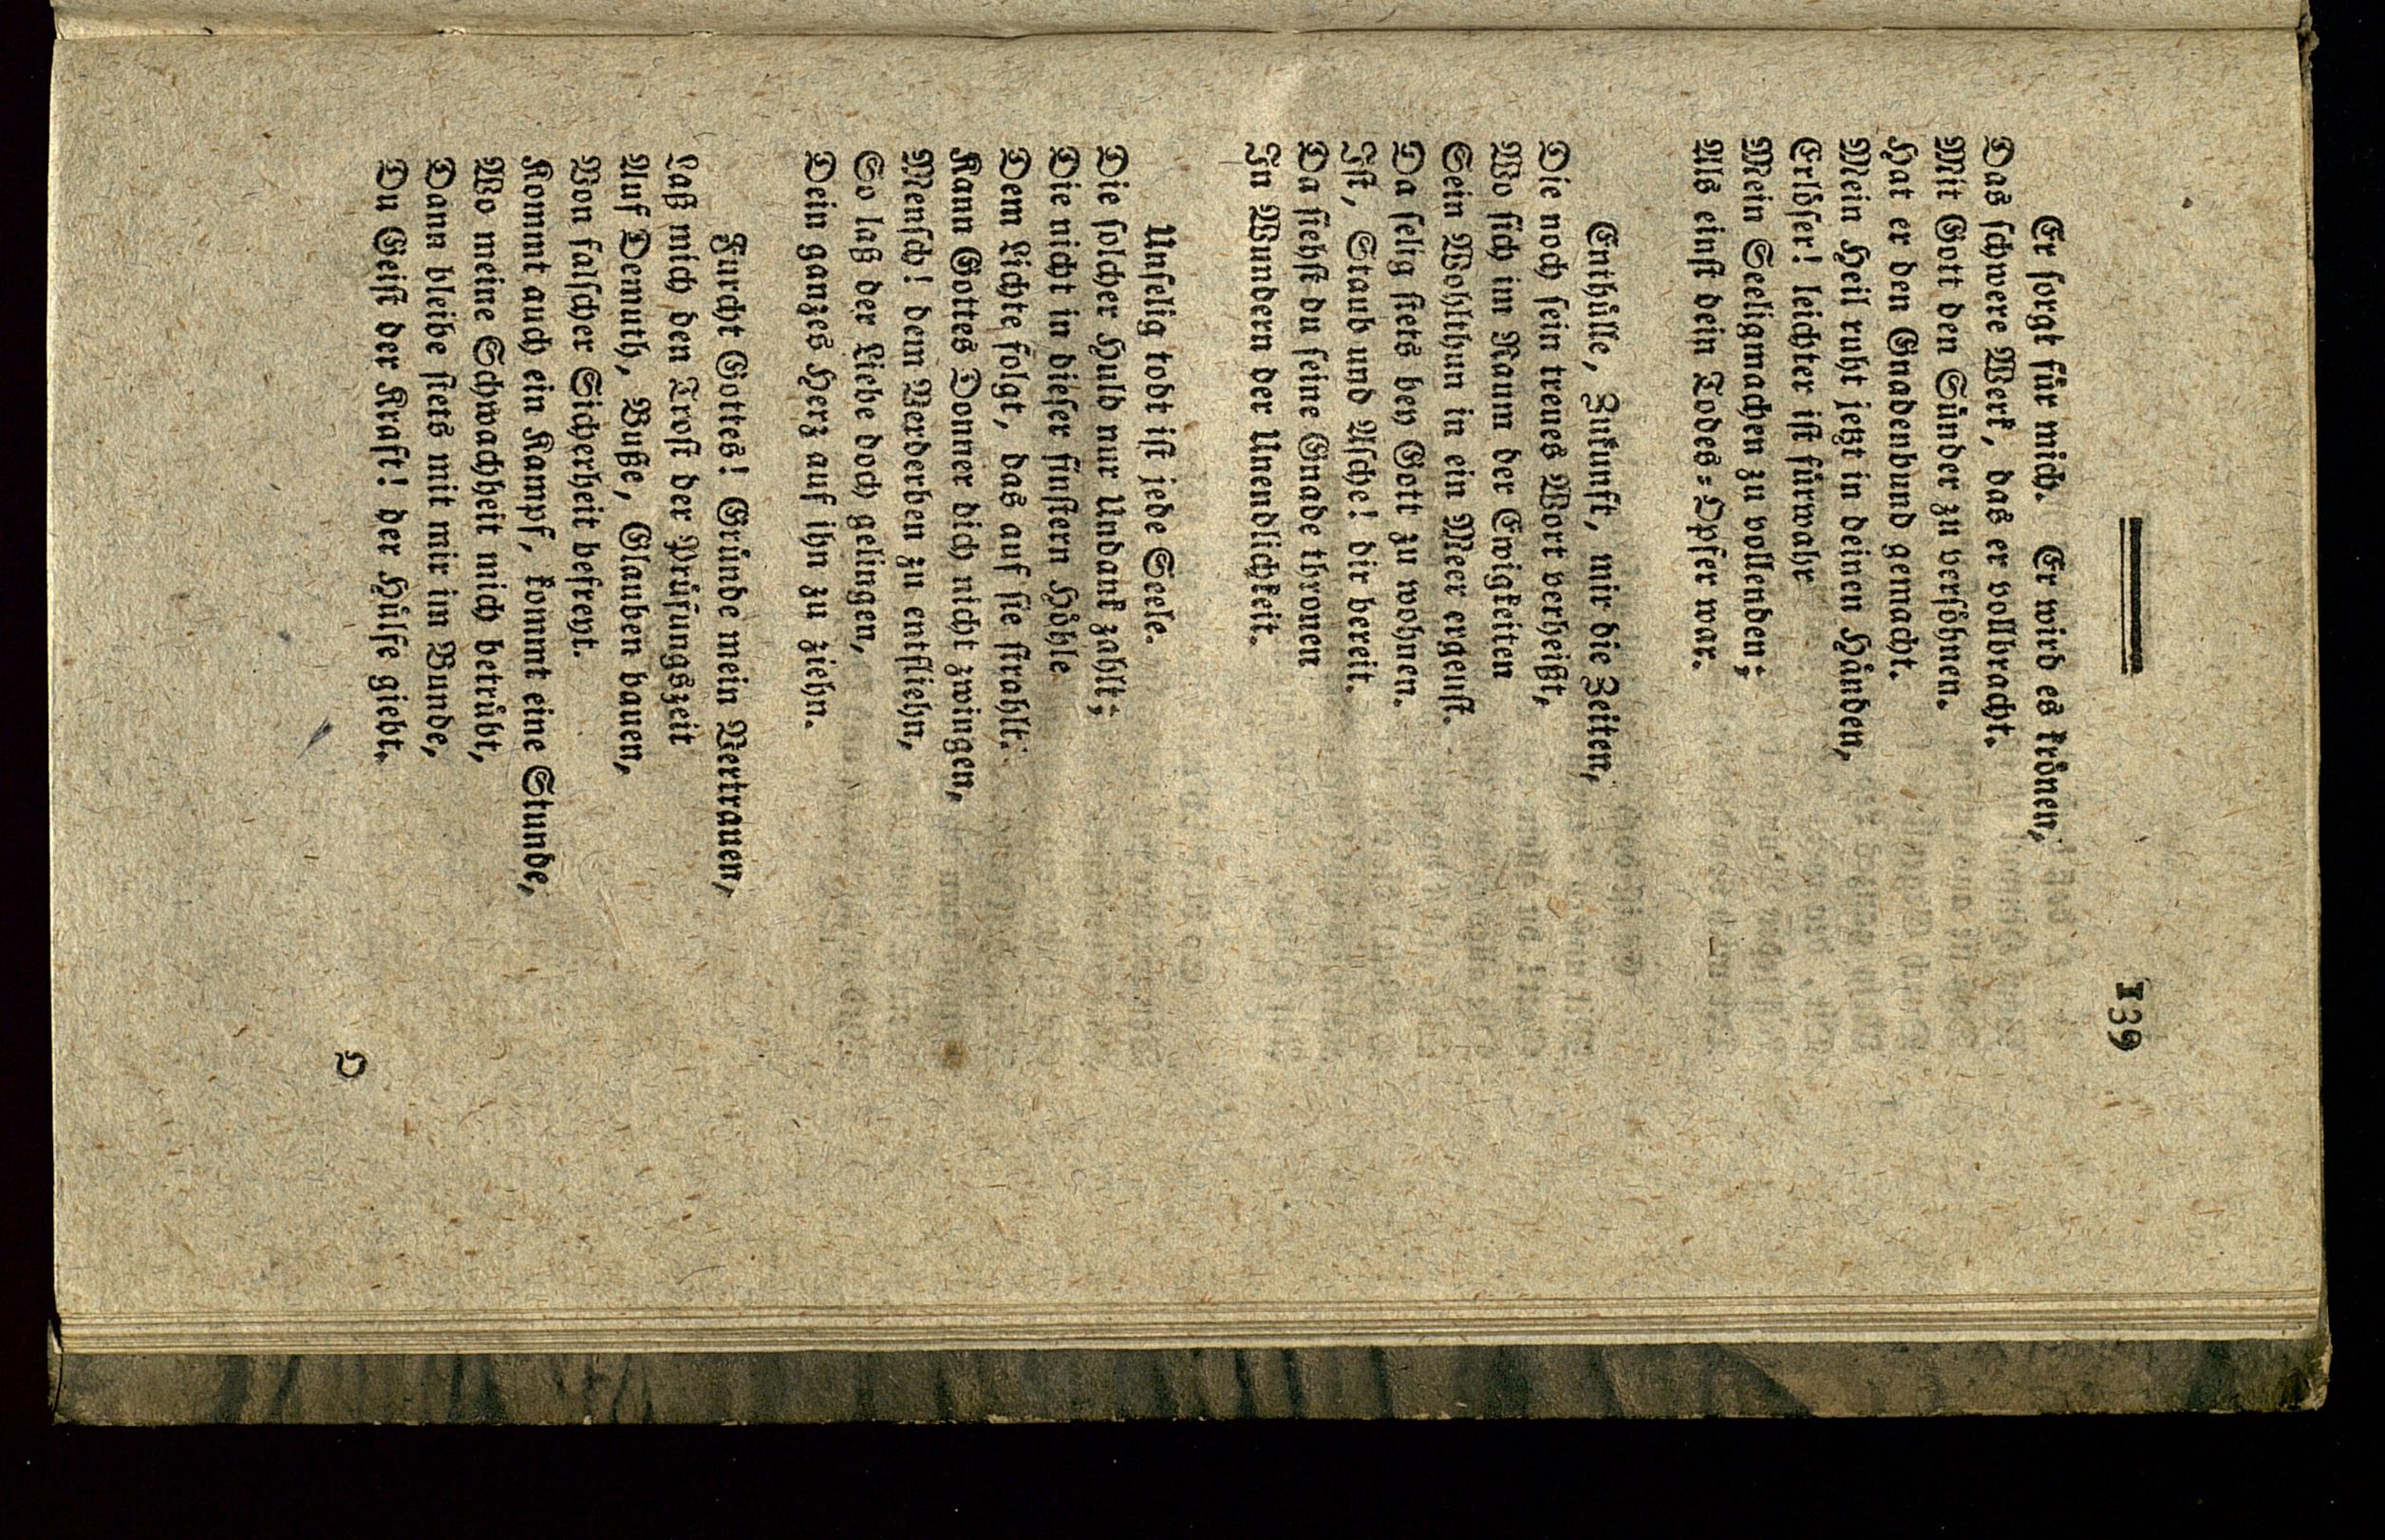 139
Er sorgt für mich. Er wird es krönen,
Das schwere Werk, das er vollbracht.
Mit Gott den Sünder zu versöhnen.
Hat er den Gnadenbund gemacht.
Mein Heil ruht jetzt in deinen Händen,
Erlöser! leichter ist fürwahr
Mein Seeligmachen zu vollenden;
Als einst dein Todes-Opfer war.
Enthülle, Zukunft, mir die Zeiten,
Die noch sein treues Wort verheißt,
Wo sich im Raum der Ewigkeiten
Sein Wohlthun in ein Meer ergeußt.
Da selig stets bey Gott zu wohnen.
Ist, Staub und Asche! dir bereit.
Da siehst du seine Gnade thronen
In Wundern der Unendlichkeit.
Unselig todt ist jede Seele.
Die solcher Huld nur Undank zahlt;
Die nicht in dieser finstern Höhle
Dem Lichte folgt, das auf sie strahlt.
Kann Gottes Donner dich nicht zwingen,
Mensch! dem Verderben zu entfliehn,
So laß der Liebe doch gelingen,
Dein ganzes Herz auf ihn zu ziehn.
Furcht Gottes! Gründe mein Vertrauen,
Laß mich den Trost der Prüfungszeit
Auf Demuth, Buße, Glauben bauen,
Von falscher Sicherheit befreyt.
Kommt auch ein Kampf, kommt eine Stunde,
Wo meine Schwachheit mich betrübt,
Dann bleibe stets mit mir im Bunde,
Du Geist der Kraft! der Hülfe giebt.